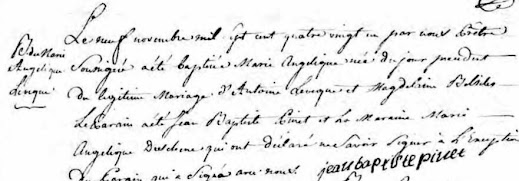 B de Marie
Angelique
Levêque
Le neuf novembre mil sept cent quatre vingt un par nous Prêtre
Soussigné a été baptisée Marie Angelique née du jour precedent
du legitime Mariage d'Antoine Leveque et Magdeleine
Le Parain a été Jean Baptiste Pinet et La Maraine Marie
Angelique Duchene qui ont déclaré ne Savoir Signer à L'Exception
Du Parain qui a Signé avec nous jean baptiste pinet